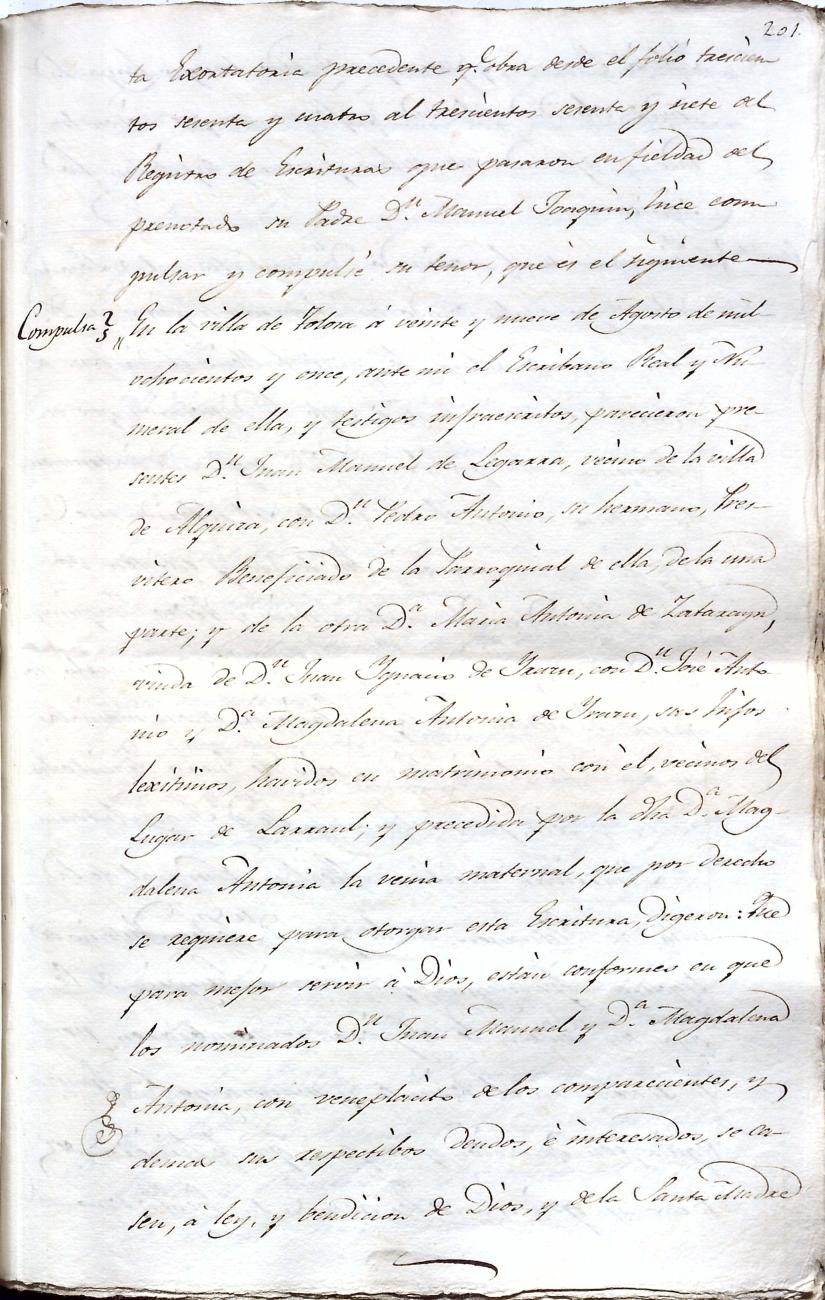 201.
ta Exortatoria precedente q.e obra desde el folio trescien
tos sesenta y cuatro al trescientos sesenta y siete del
Registro de Escrituras que pasaron en fieldad del
prenotado su Padre D.n Manuel Joaquin, hice com
pulsar y compulsé su tenor, que és el siguiente
Compulsa
"En la villa de Tolosa á veinte y nueve de Agosto de mil
ochocientos y once, ante mi el Escribano Real y Nu-
meral de ella, y testigos infraescritos, parecieron pre-
sentes D.n Juan Manuel de Legarra, vecino de la villa
de Alquiza, con D.n Pedro Antonio, su hermano, Pres-
vitero Beneficiado de la Parroquial de ella, de la una
parte; y de la otra D.a Maria Antonia de Zatarayn,
viuda de D.n Juan Ygnacio de Yraru, con D.n José Anto
nio y D.a Magdalena Antonia de Yraru, sus hijos
lexitimos, havidos en matrimonio con él, vecinos del
Lugar de Larraul; y precedida por la dha D.a Mag-
dalena Antonia la venia maternal, que por derecho
se requiere para otorgar esta Escritura, digeron: Que
para mejor servir á Dios, están conformes en que
los nominados D.n Juan Manuel y D.a Magdalena
Antonia, con veneplacito de los comparecientes, y
demas sus respectibos deudos, é interesados, se ca-
sen, á ley, y bendicion de Dios, y de la Santa Madre